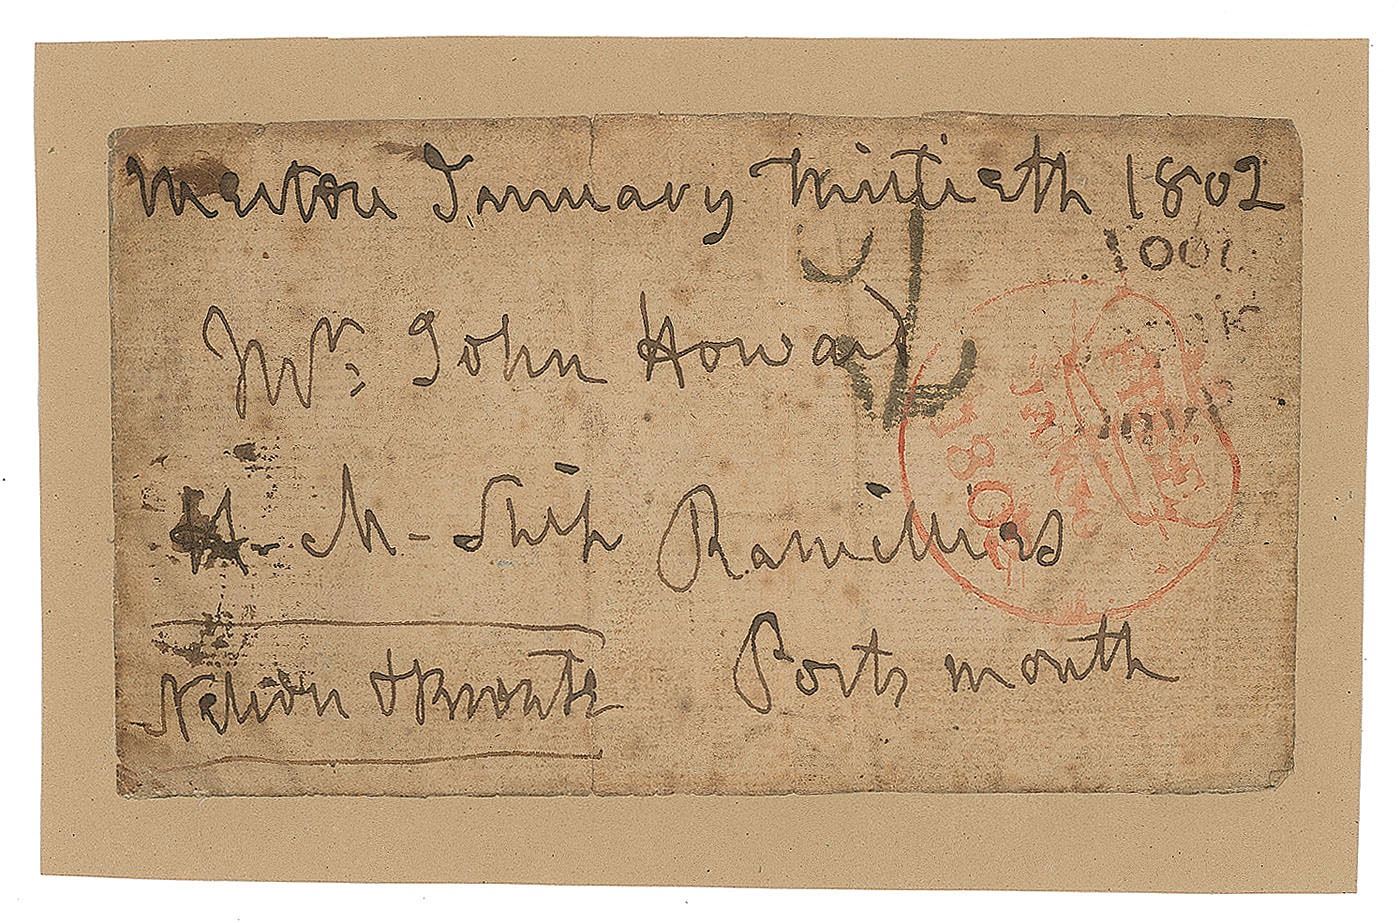 Merton January thirtieth 1802
Mr: John Howard
H- M- Ship Ramillies
Portsmouth
Nelson & Bronte
1802